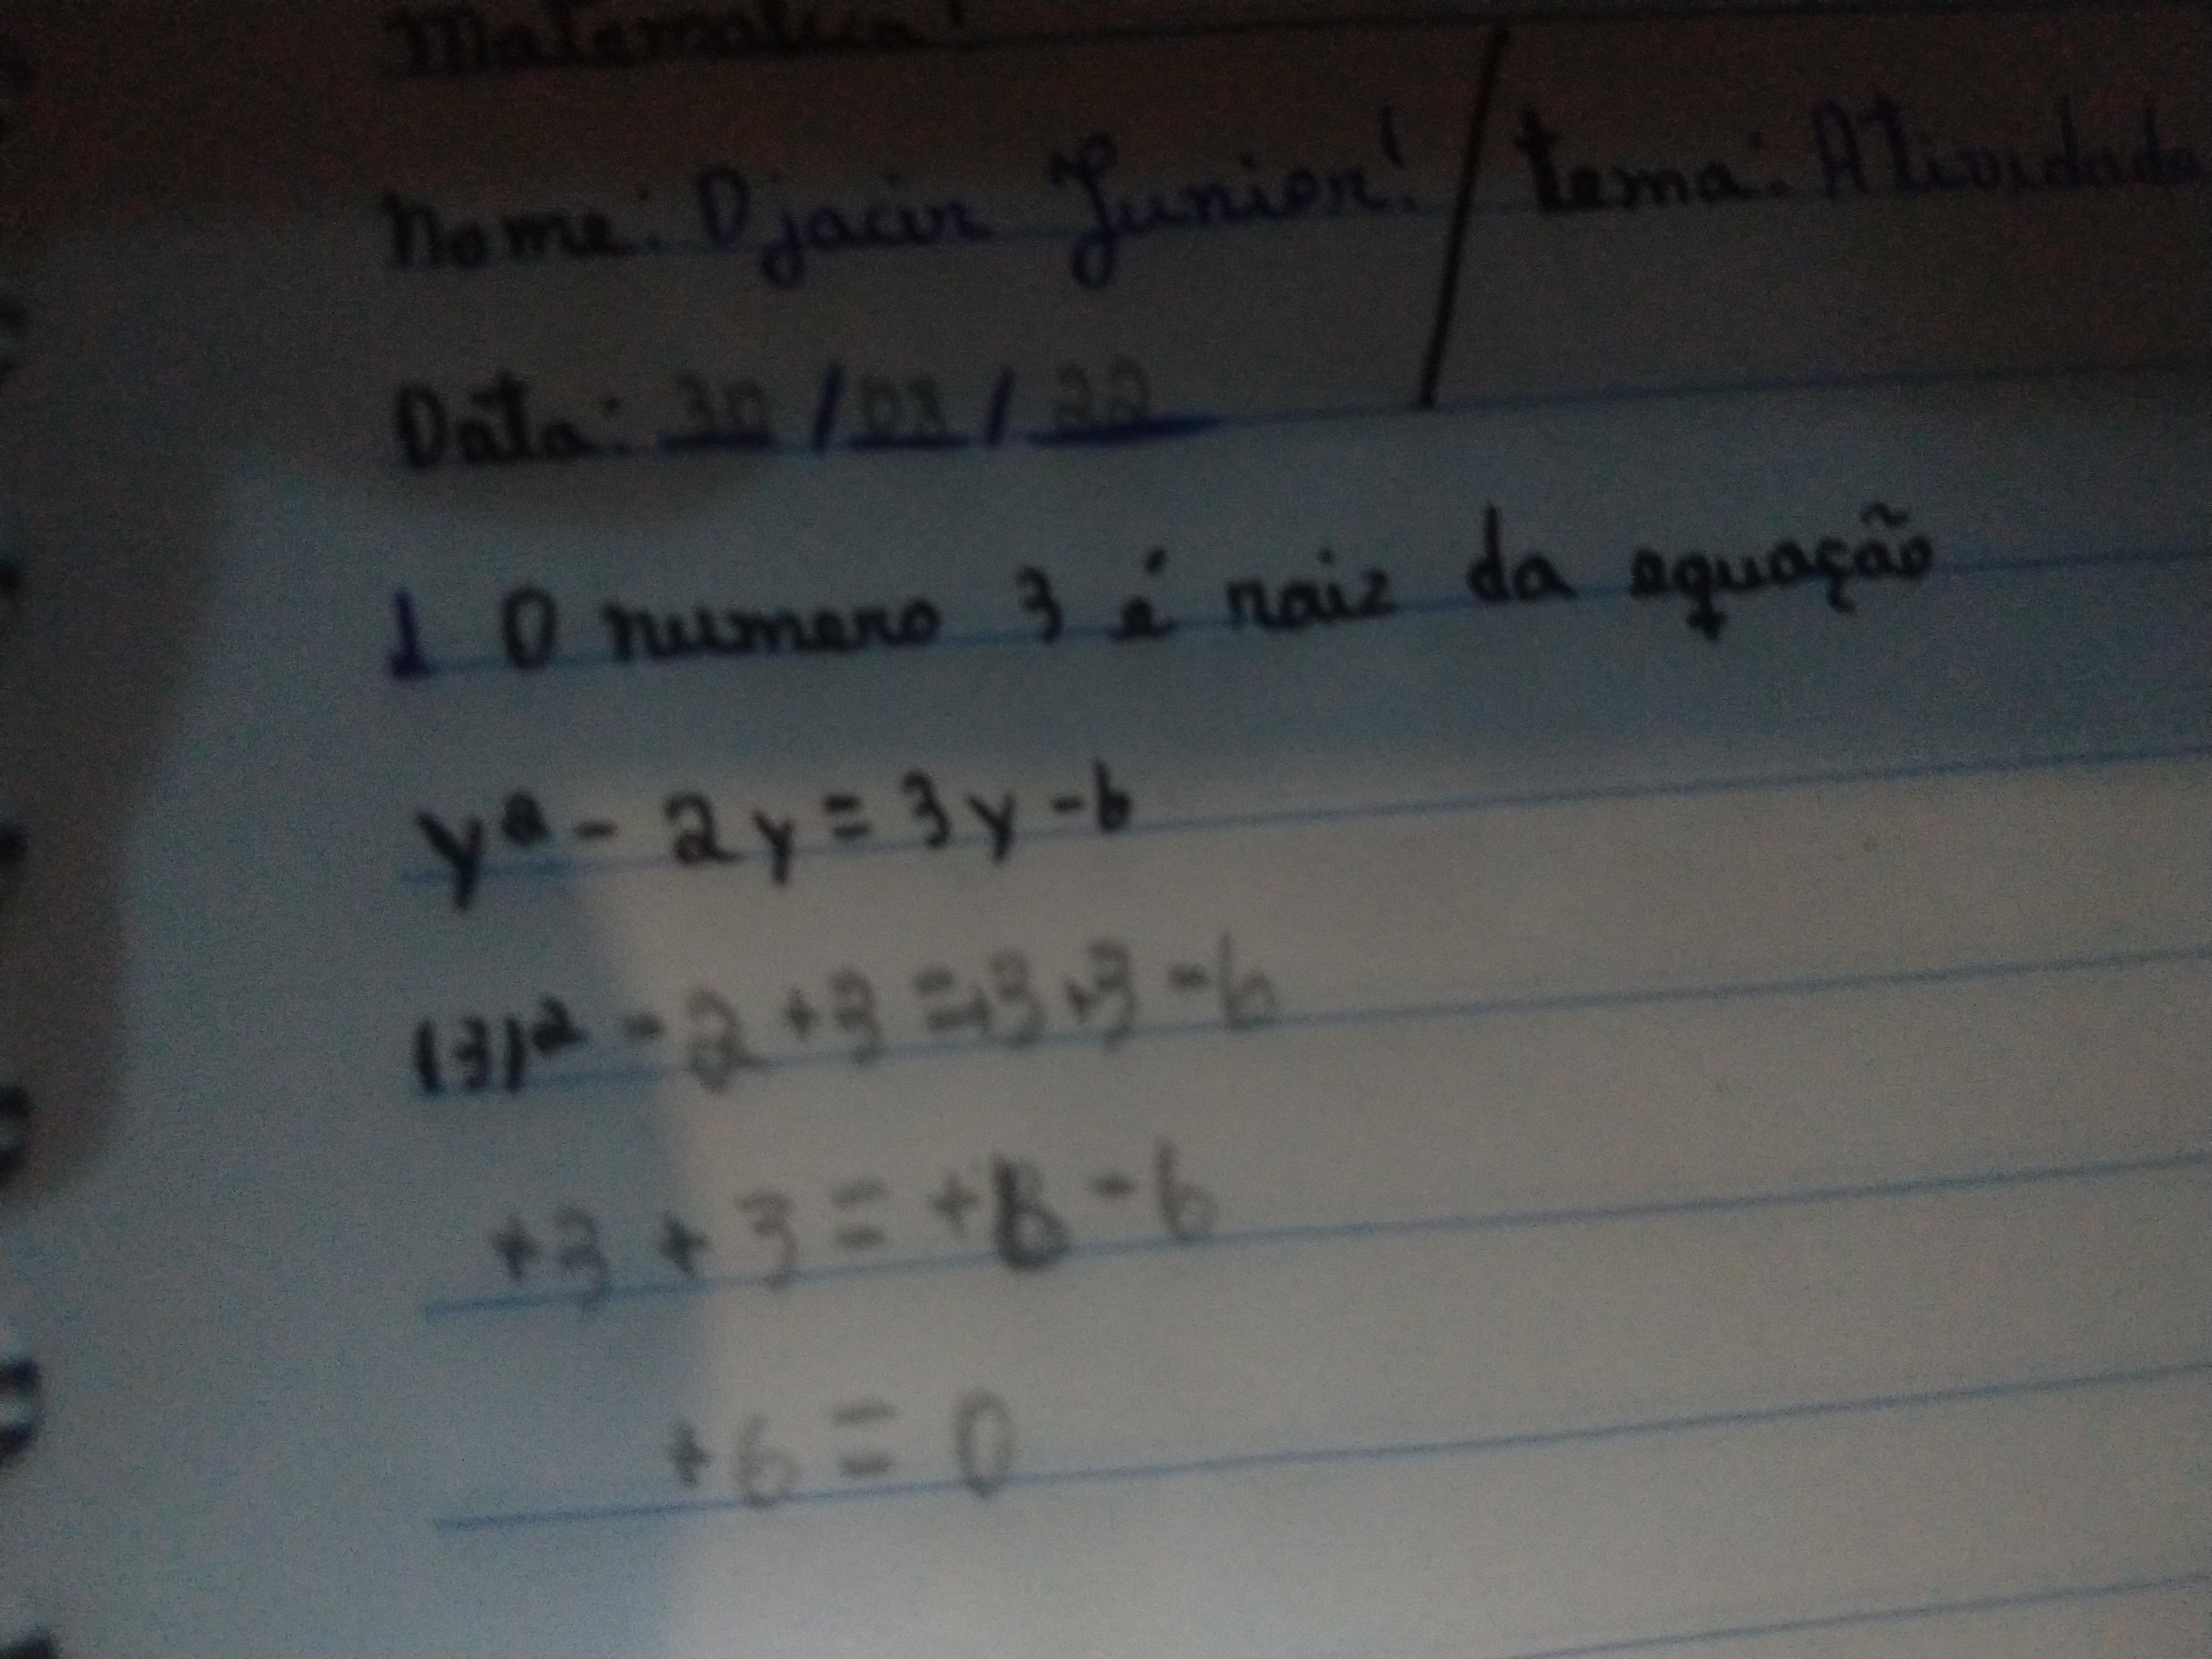 Matematica!
Nome: Djacir Junior! / tema: Atividade
Data: 30 / 03 / 22
1 O numero 3 é raiz da equação
y² - 2y = 3y - 6
(3)² - 2 + 3 = +3 + 3 - 6
+3 + 3 = +6 - 6
+6 = 0